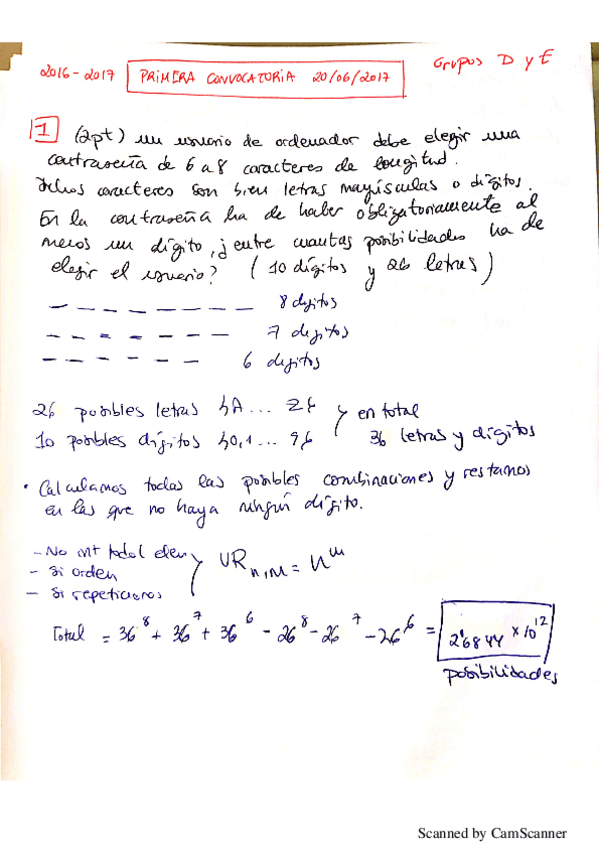 2016-2017 PRIMERA CONVOCATORIA 20/06/2017 Grupos D y E
1 (2pt) un usuario de ordenador debe elegir una
contraseña de 6 a 8 caracteres de longitud.
Dichos caracteres son bien letras mayúsculas o dígitos.
En la contraseña ha de haber obligatoriamente al
menos un dígito, ¿entre cuantas posibilidades ha de
elegir el usuario? (10 dígitos y 26 letras)
_ _ _ _ _ _ _ _ 8 digitos
_ _ _ _ _ _ _ 7 digitos
_ _ _ _ _ _ 6 digitos
26 posibles letras {A... Z} } en total
10 posibles dígitos {0,1... 9} 36 letras y dígitos
· Calculamos todas las posibles combinaciones y restamos
en las que no haya ningún dígito.
- No int todos elem
- Si orden } VR n,m = n^m
- Si repeticiones
Total = 36^8 + 36^7 + 36^6 - 26^8 - 26^7 - 26^6 = 2'6844 × 10^12
posibilidades
Scanned by CamScanner